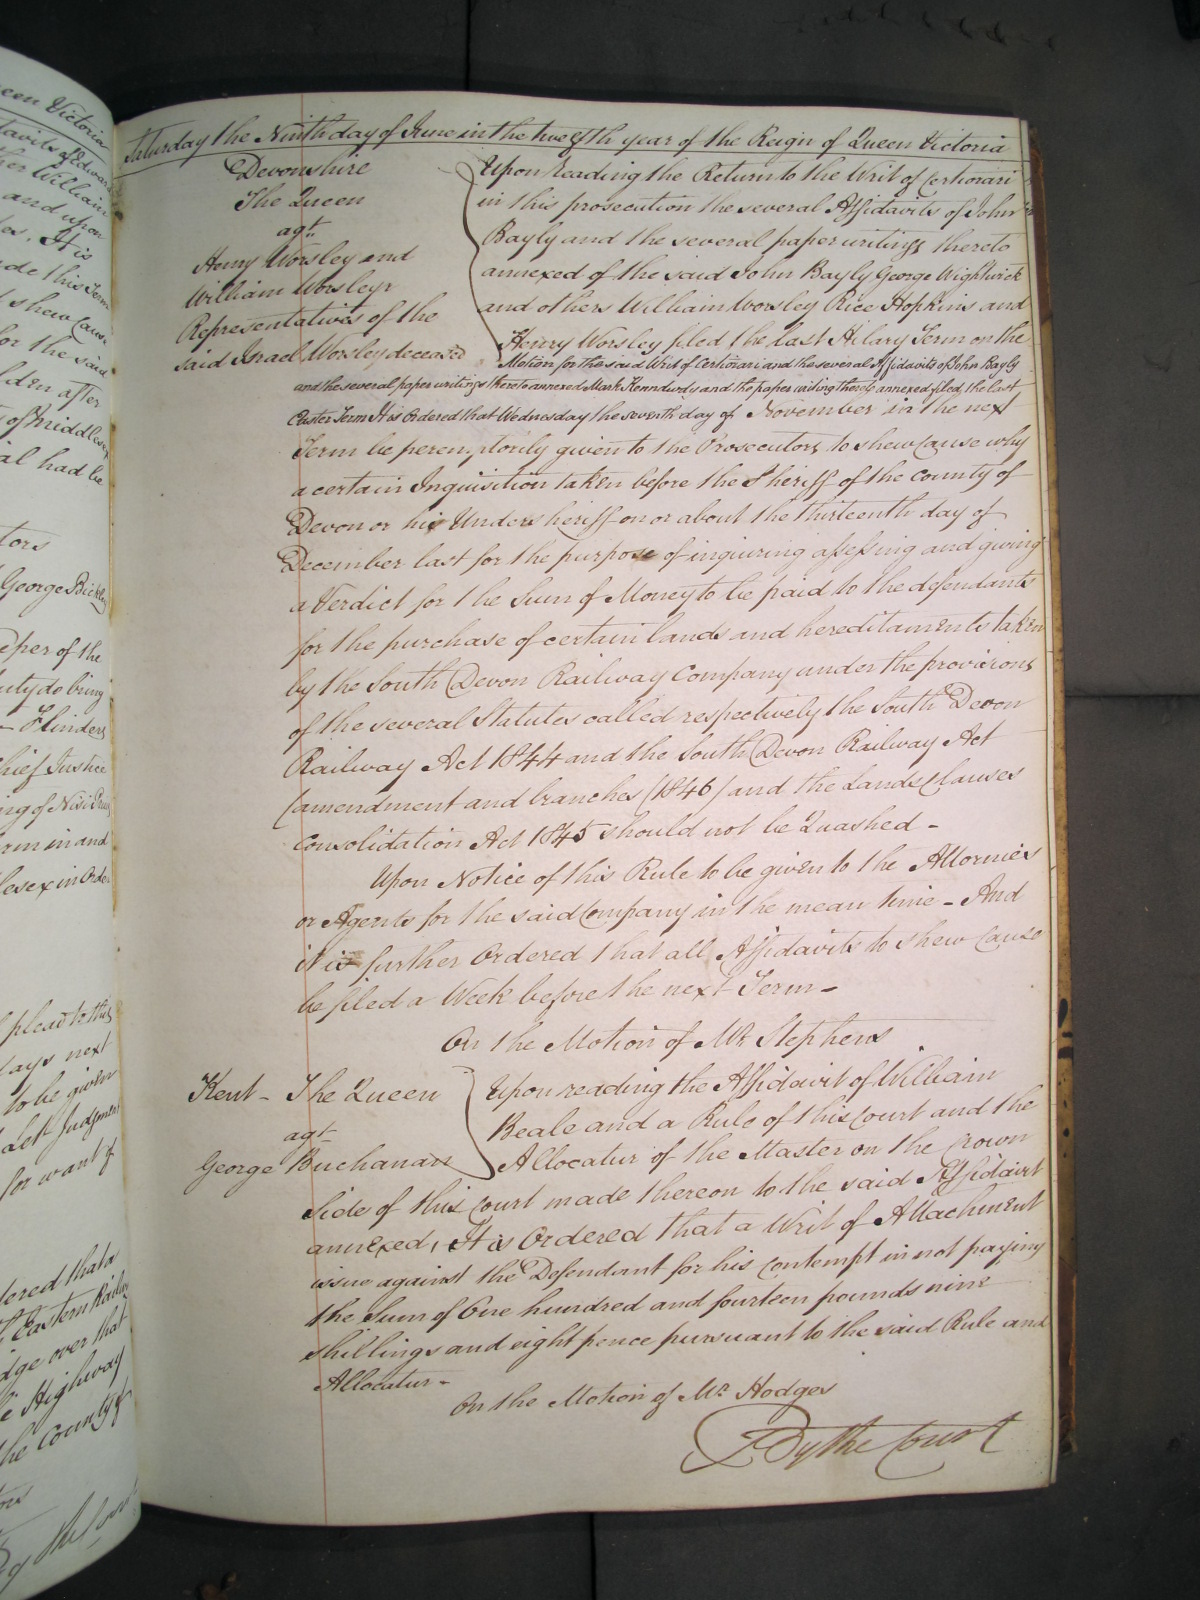 een Victoria
davits of Edward
her William
and upon
es. It is
ade this Term
shew Cause
or the said
lden after
of Middlesex
al had be
tors
George Bickley
eper of the
uty do bring
Flinders
hief Justice
ing of Nisi Prius
rm in and
lesex in Orde
plead to this
days next
to be given
Let Judgment
for want of
dered that a
Eastern Railway
dge over that
e Highway
the County of
By the Court
Saturday the Ninth day of June in the twelfth year of the Reign of Queen Victoria
Devonshire
The Queen
agt.
Henry Worsley and
William Worsley
Representatives of the
said Israel Worsley deceased
Upon reading the Return to the Writ of Certiorari
in this prosecution the several Affidavits of John
Bayly and the several paper writings thereto
annexed of the said John Bayly George Wightwick
and others William Worsley Rice Hopkins and
Henry Worsley filed the last Hilary Term on the
Motion for the said Writ of Certiorari and the several Affidavits of John Bayly
and the several paper writings thereto annexed Mark Kennedy and the paper writing thereto annexed filed the last
Easter Term It is Ordered that Wednesday the seventh day of November in the next
Term be peremptorily given to the Prosecutors to shew Cause why
a certain Inquisition taken before the Sheriff of the County of
Devon or his Under sheriff on or about the thirteenth day of
December last for the purpose of inquiring assessing and giving
a Verdict for the Sum of Money to be paid to the defendants
for the purchase of certain lands and hereditaments taken
by the South Devon Railway Company under the provisions
of the several Statutes called respectively the South Devon
Railway Act 1844 and the South Devon Railway Act
(amendment and branches (1846) and the Lands Clauses
Consolidation Act 1845 should not be Quashed -
Upon Notice of this Rule to be given to the Attornies
or Agents for the said Company in the mean time - And
it is further Ordered that all Affidavits to shew Cause
be filed a Week before the next Term -
On the Motion of Mr Stephens
Kent - The Queen
agt
George Buchanan
Upon reading the Affidavit of William
Beale and a Rule of this Court and the
Allocatur of the Master on the Crown
Side of this Court made thereon to the said Affidavit
annexed, It is Ordered that a Writ of Attachment
issue against the Defendant for his contempt in not paying
the Sum of One hundred and fourteen pounds nine
shillings and eight pence pursuant to the said Rule and
Allocatur -
On the Motion of Mr Hodges
By the Court